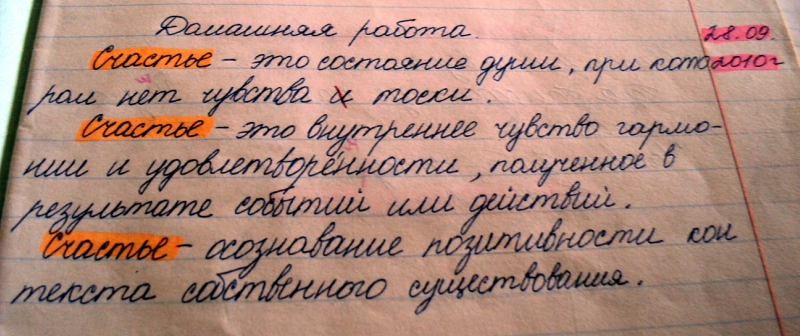 Домашняя работа.
28.09.
Счастье - это состояние души, при кото
2010г
ром нет чувства и тоски.
Счастье - это внутреннее чувство гармо-
нии и удовлетворённости, полученное в
результате событий или действий.
Счастье - осознавание позитивности кон
текста собственного существования.